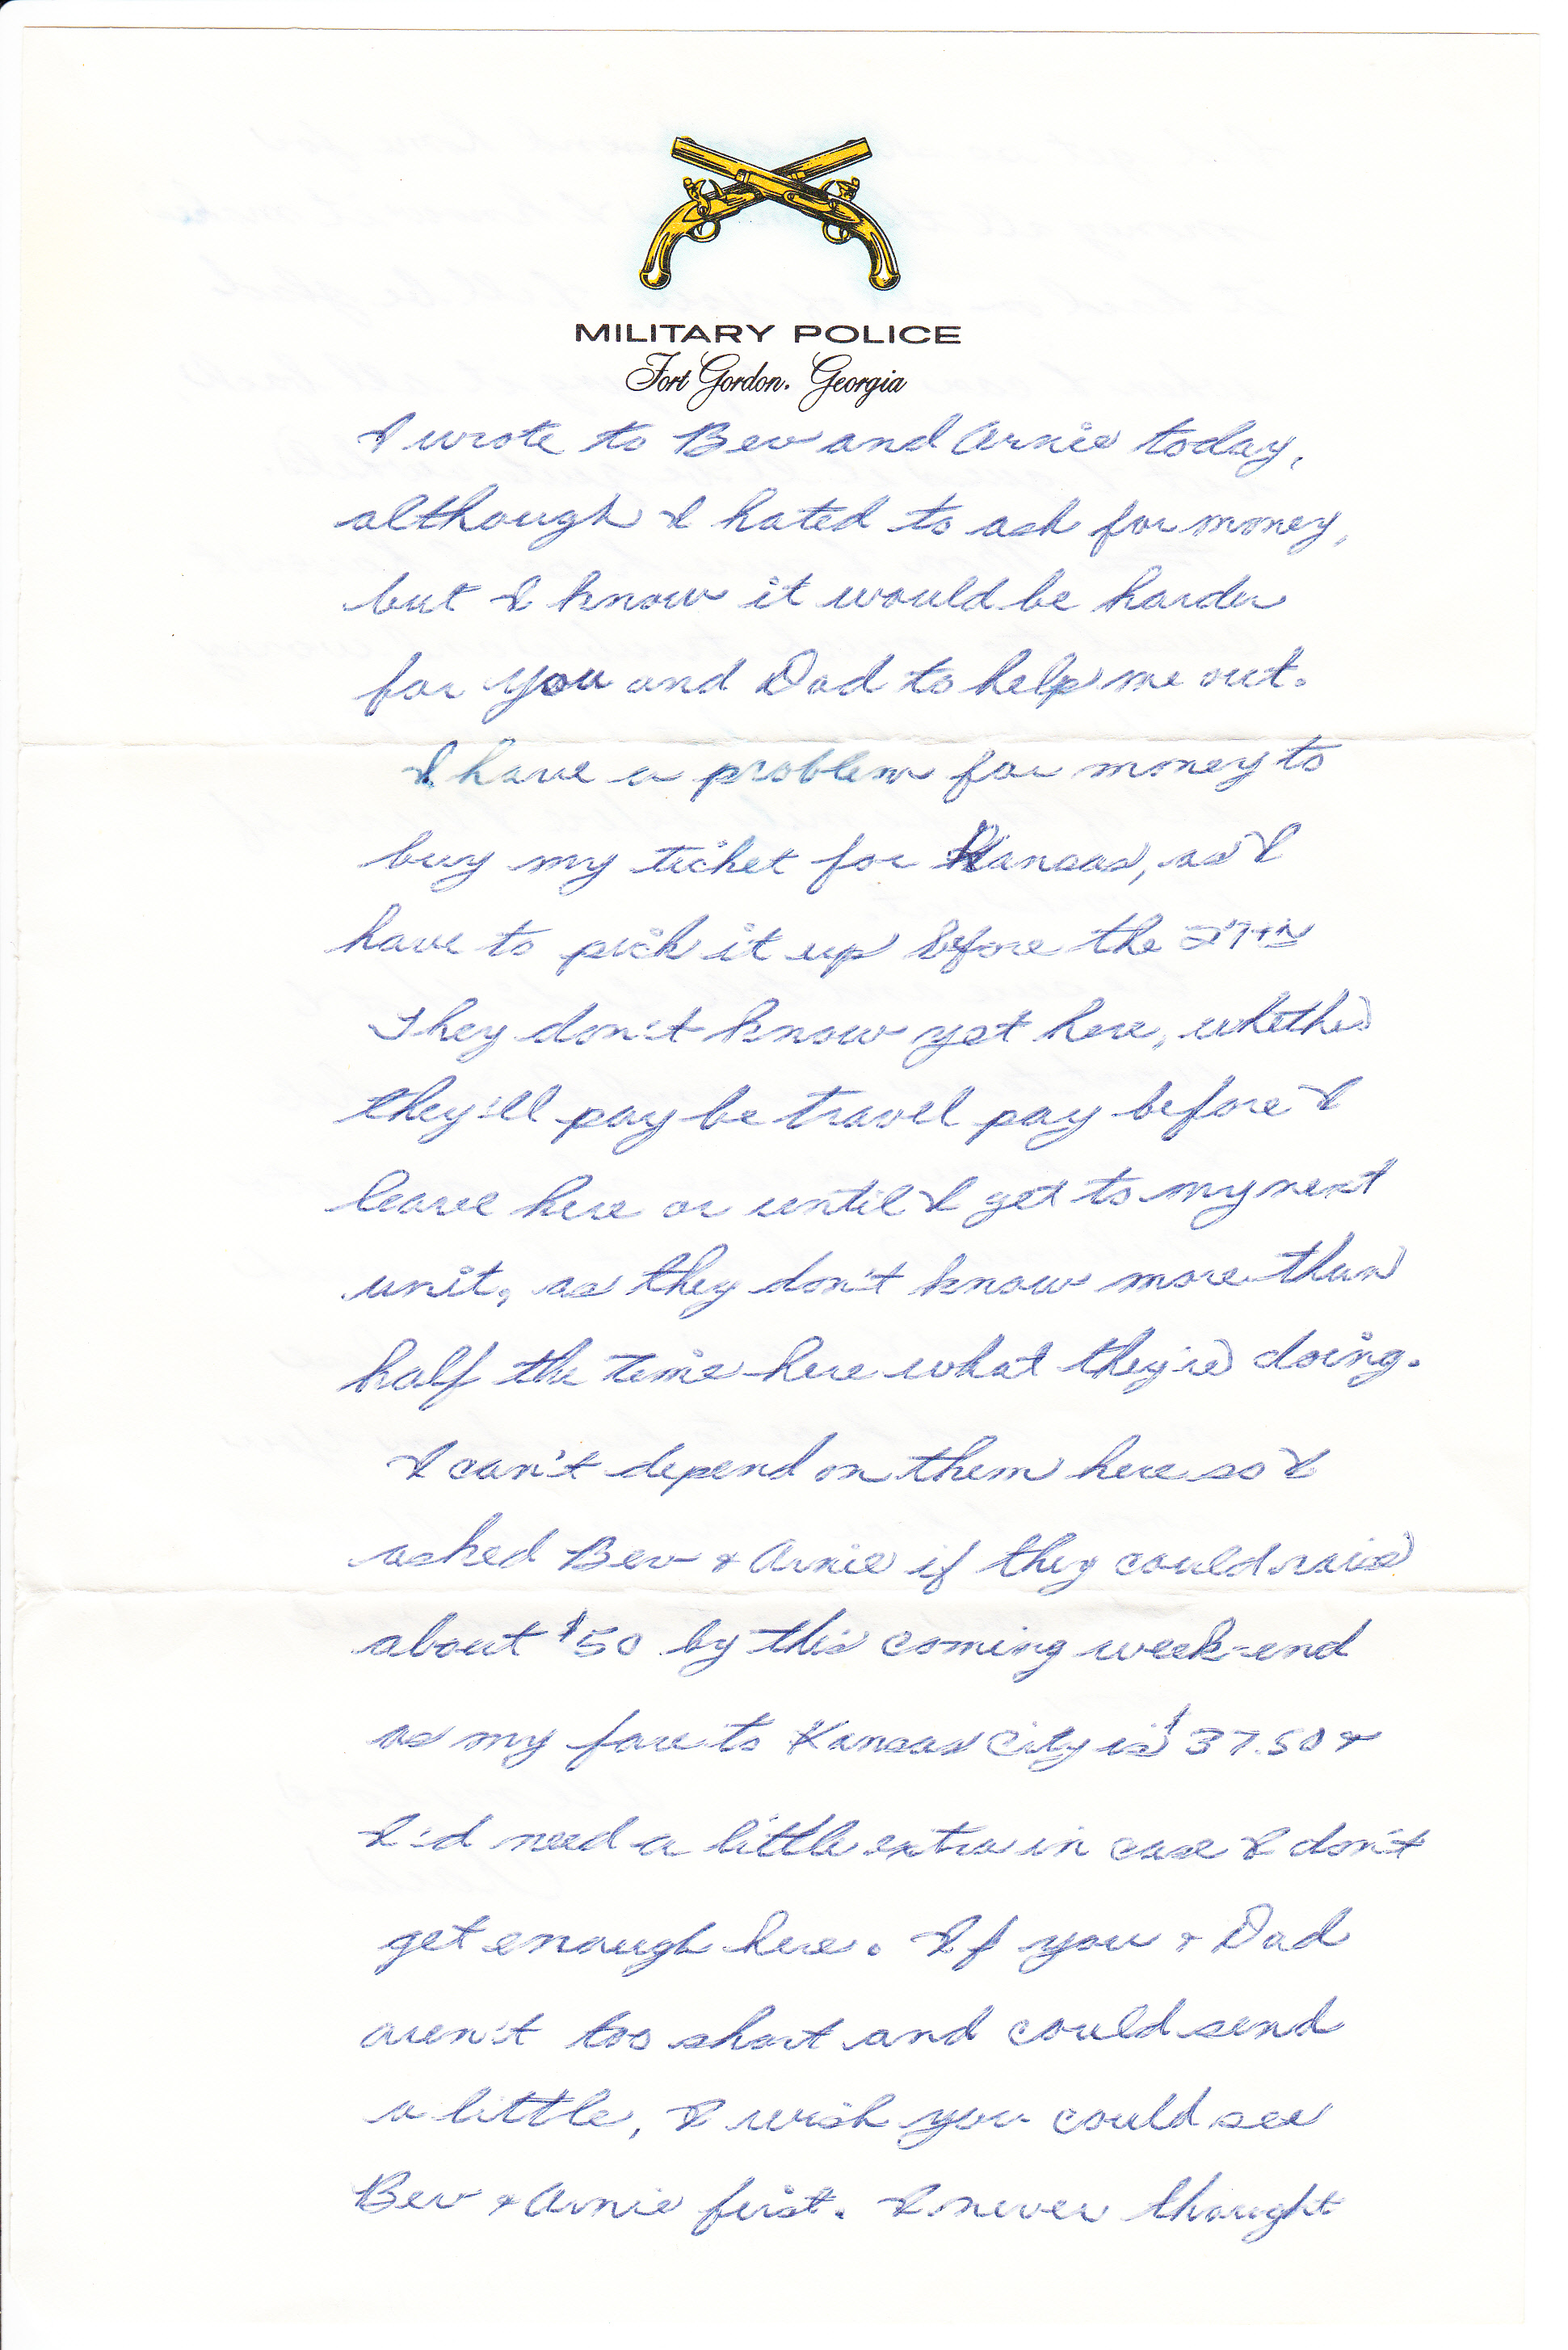 MILITARY POLICE
Fort Gordon, Georgia
I wrote to Bev and Arnie today,
although I hated to ask for money,
but I know it would be harder
for you and Dad to help me out.
I have a problem for money to
buy my ticket for Kansas, as I
have to pick it up before the 27th
They don't know yet here, whether
they'll pay be travel pay before I
leave here or until I get to my next
unit, as they don't know more than
half the time here what they're doing.
I can't depend on them here so I
asked Bev & Arnie if they could raise
about $50 by this coming week-end
as my fare to Kansas City is $37.50 &
I'd need a little extra in case I don't
get enough here. If you & Dad
aren't too short and could send
a little, I wish you could see
Bev & Arnie first. I never thought